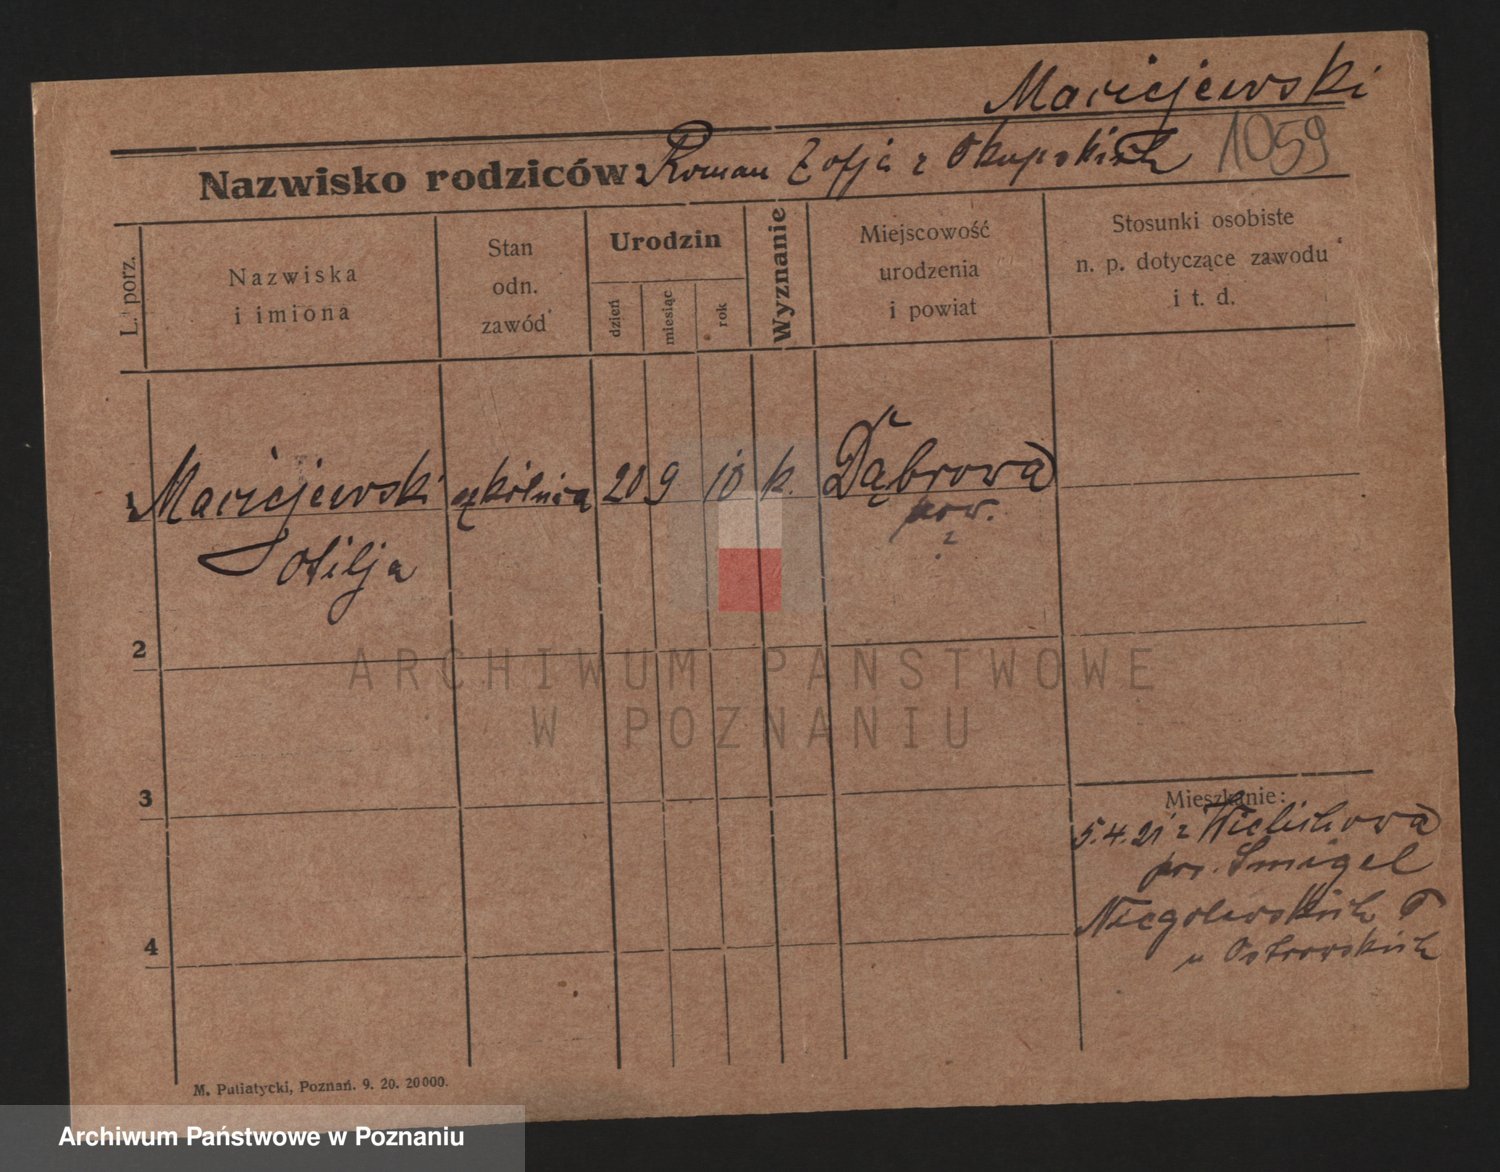 Maciejewski
Nazwisko rodziców: Roman Zofja z Okupskich 1059
L. porz.
Nazwiska
i imiona
Stan
odn.
zawód
Urodzin
dzień
miesiąc
rok
Wyznanie
Miejscowość
urodzenia
i powiat
Stosunki osobiste
n. p. dotyczące zawodu
i t. d.
1 Maciejewski szkólnica 20 9 10 k. Dąbrowa
pow.
?
Otilja
2
ARCHIWUM PAŃSTWOWE
W POZNANIU
3
Mieszkanie:
5.4.21 z Wielichowa
pow. Śmigel
Niegolewskich
u Ostrowskich
4
M. Putiatycki, Poznań. 9. 20. 20000.
Archiwum Państwowe w Poznaniu